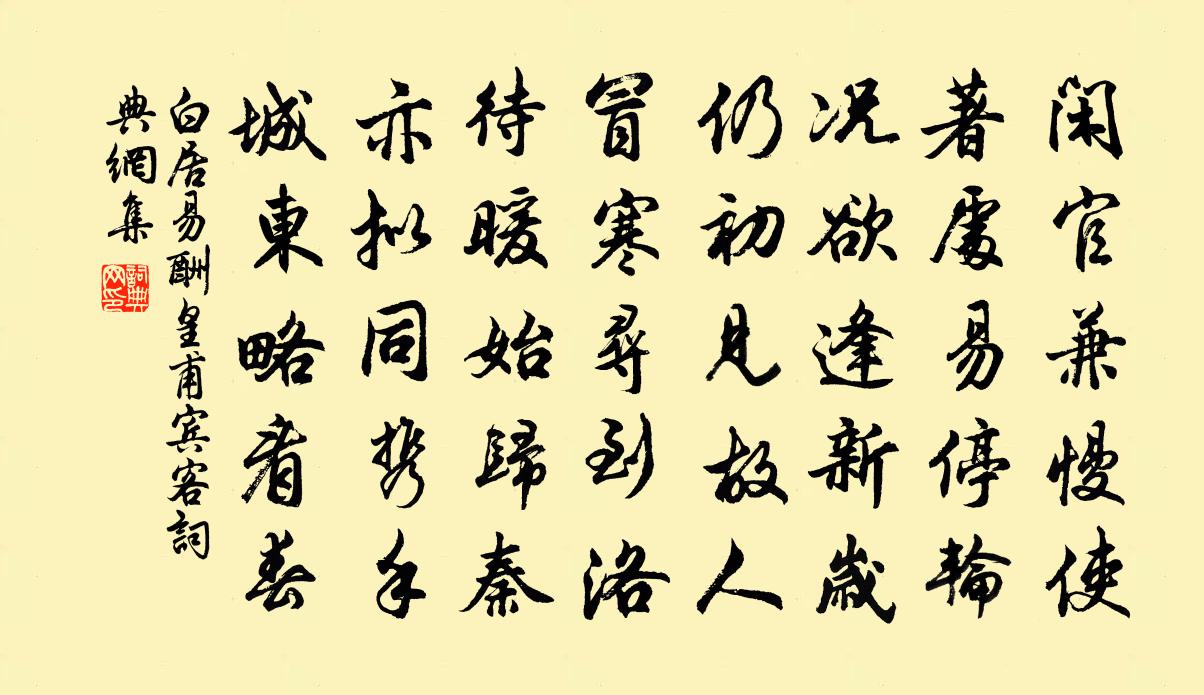 閑官兼慢使
著處易停輪
况欲逢新歲
仍初見故人
冒寒尋到洛
待暖始歸秦
亦拟同携手
城東略看春
白居易酬皇甫宾客詞
典網集
詞典网印